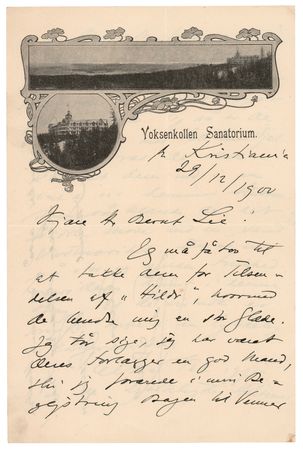 Voksenkollen Sanatorium.
pr Kristiania
29/12/1900
Kjære Hr Bernt Lie!
Jeg må få lov til
at takke Dem for Tilsen-
delsen af "Hildr" hvormed
De beredte mig en stor Glæde.
Jeg tør sige, jeg har været
Deres Forlægger en god Mand,
thi jeg forærede i min Be-
gejstring Bogen til Venner